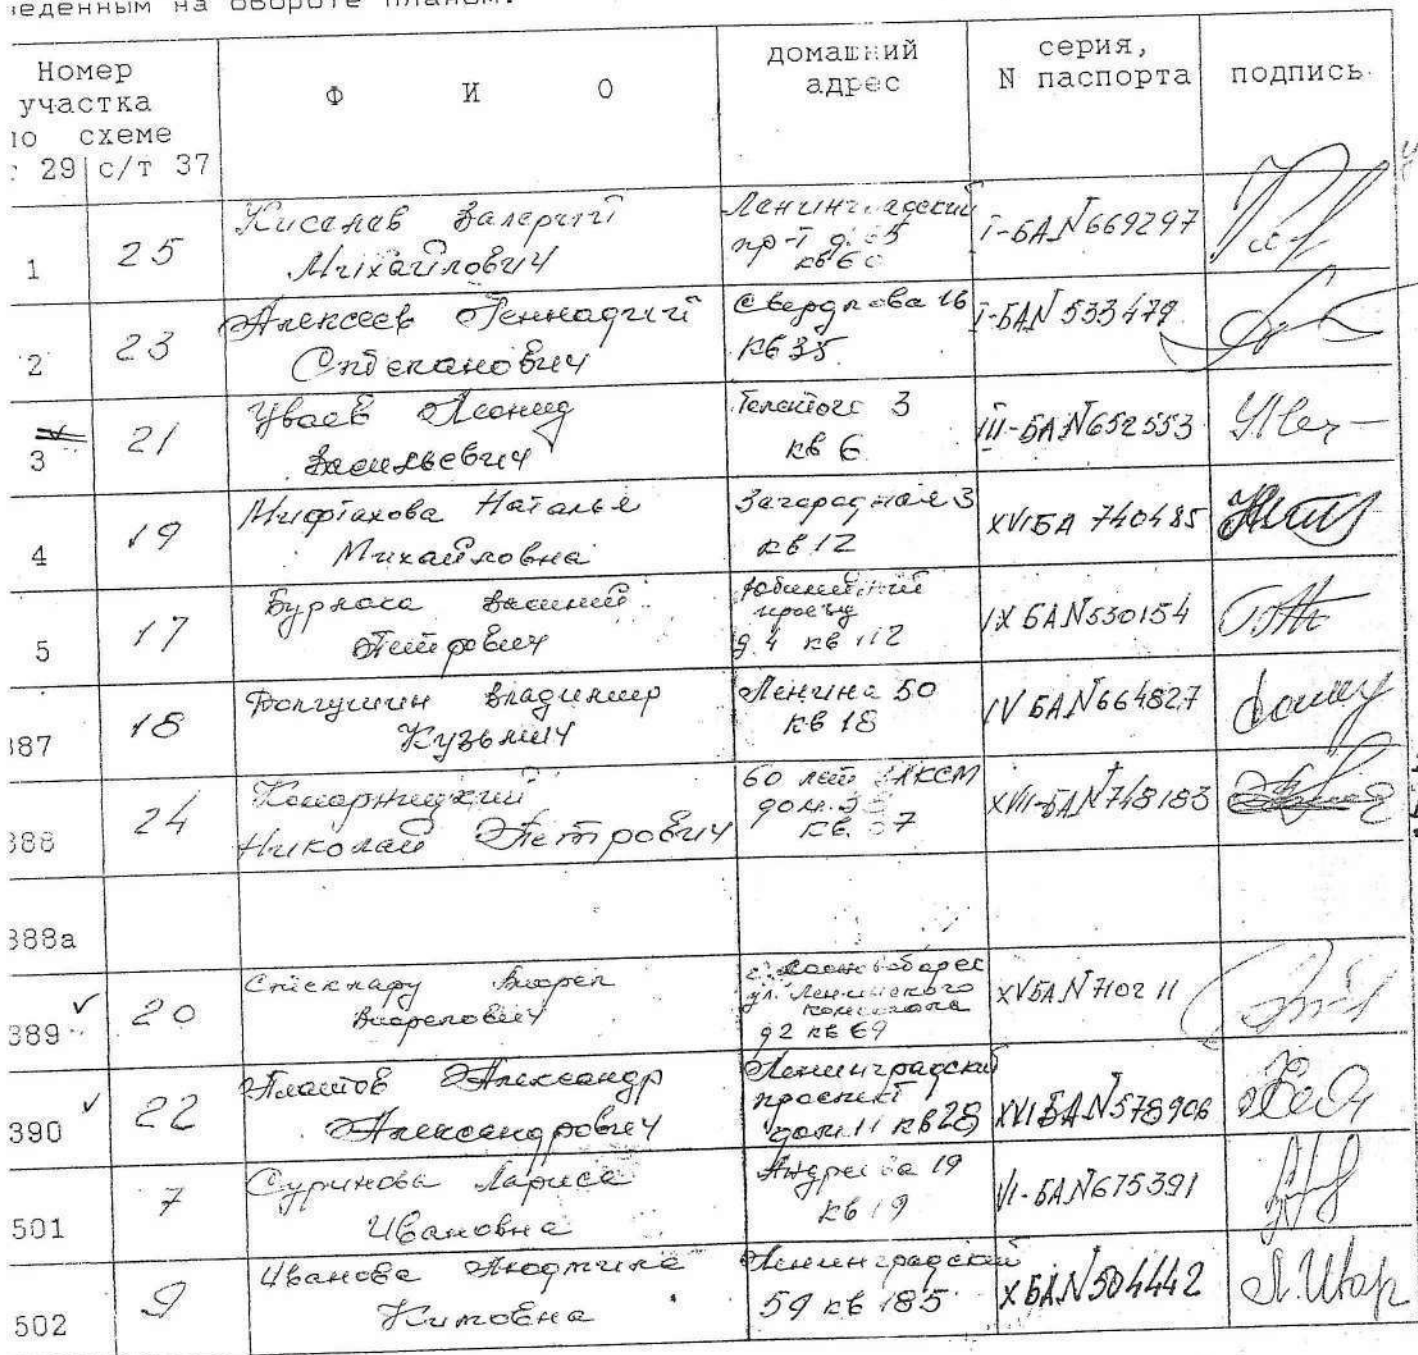 веденным на обороте планом.
Номер участка по схеме
29 с/т 37
Ф И О
домашний адрес
серия, N паспорта
подпись
1 25 Киселев Валерий Михайлович Ленинградский пр-т кв 60 I-БА N 669297
2 23 Алексеев Геннадий Степанович Свердлова 16 кв 35 I-БА N 533479
3 21 Уваев Леонид Васильевич 3 кв 6 III-БА N 652553
4 19 Мифтахова Наталья Михайловна Загородная 3 кв 12 XVI БА 740485
5 17 Бурлака Василий Петрович Юбилейный проезд д. 4 кв 112 IX БА N 530154
387 18 Долгушин Владимир Кузьмич Ленина 50 кв 18 IV БА N 664827
388 24 Николай Петрович 60 лет ВЛКСМ дом кв. XVII-БА N 748183
388а
389 20 Виорел Виорелович г. Сосновоборск ул. Ленинского комсомола д 2 кв 69 XV БА N 710211
390 22 Платов Александр Александрович Ленинградский проспект дом 11 кв 28 XVI БА N 578906
501 7 Суринова Лариса Ивановна Андреева 19 кв 19 VI-БА N 675391
502 9 Иванова Людмила Кимовна Ленинградский 59 кв 185 X БА N 504442 Л. Ивар